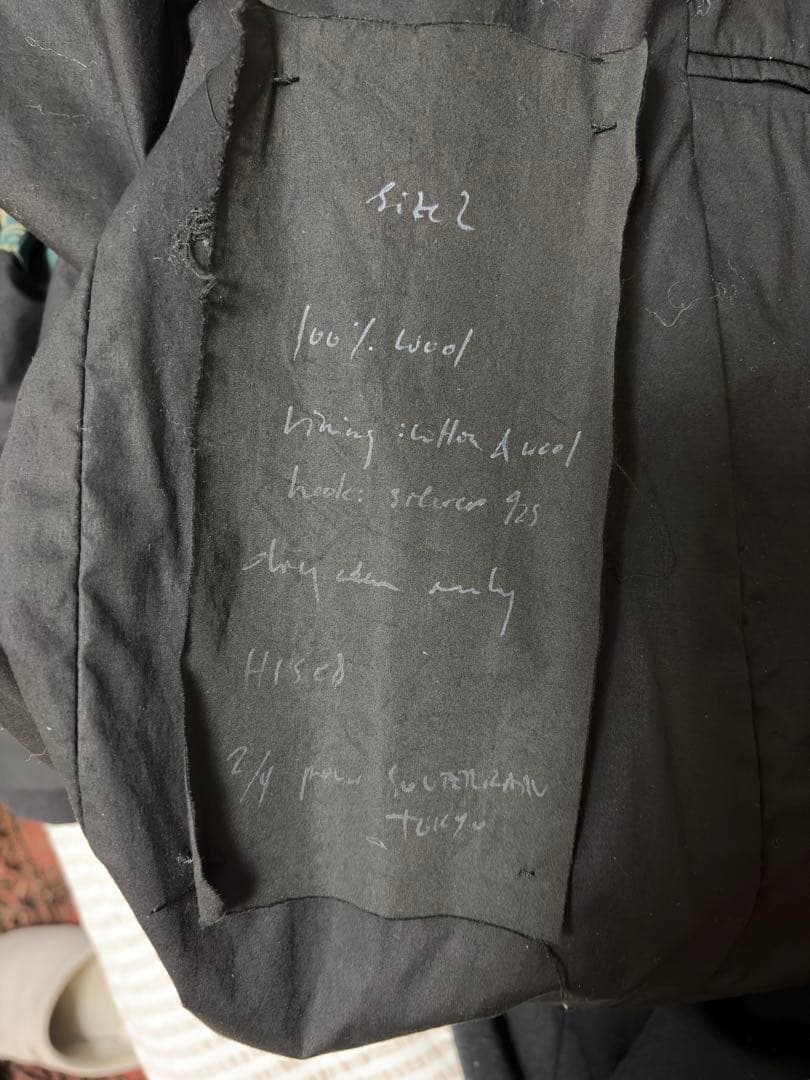 size 2
100% wool
lining : cotton & wool
hook: silver 925
dry clean only
2/4 pour SOUTERRAIN
TOKYO